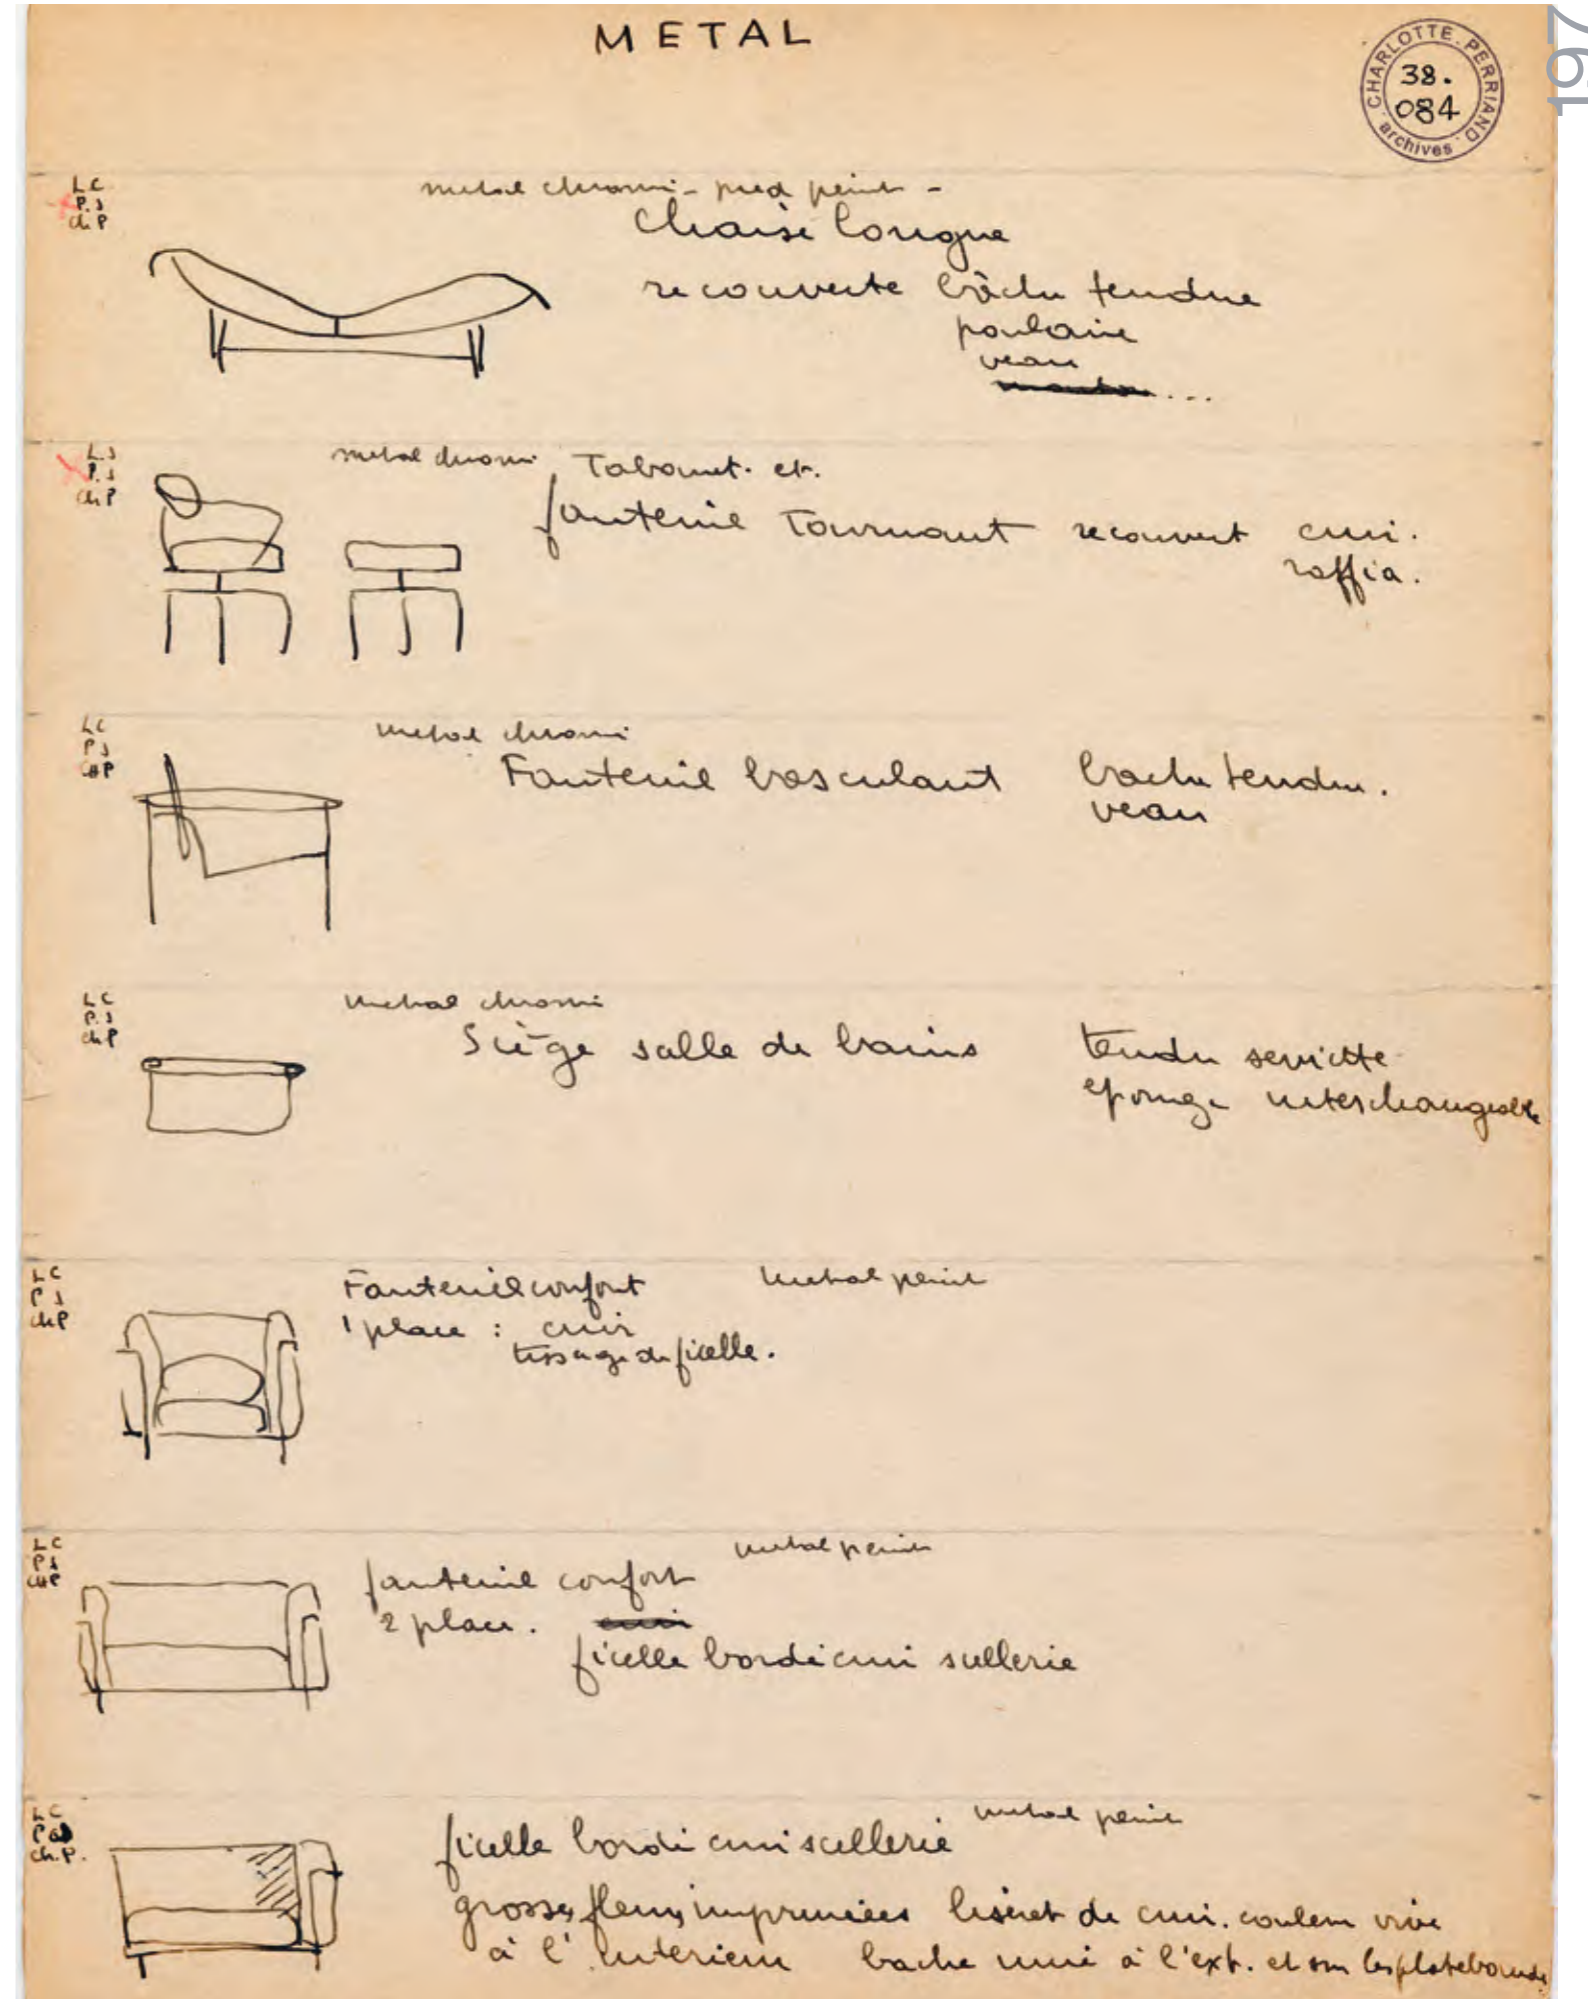 METAL
CHARLOTTE PERRIAND
38.
084
archives
197
LC
P.J
ch.P
metal chromé - pied peint -
Chaise longue
recouverte bâche tendue
poulain
veau
mouton...
L.J
P.J
ch P
metal chromé Tabouret. et.
fauteuil Tournant recouvert cuir.
raffia.
LC
PJ
chP
metal chromé
Fauteuil basculant bache tendue.
veau
LC
P.J
chP
metal chromé
Siège salle de bains tendu serviette
eponge interchangeable
LC
PJ
chP
Fauteuil confort metal peint
1 place : cuir
tissage de ficelle.
LC
PJ
chP
metal peint
fauteuil confort
2 place. cuir
ficelle bordé cuir sellerie
LC
ch.P.
ficelle bordé cuir scellerie metal peint
grosses fleurs imprimées liseret de cuir. couleur vive
à l'interieur bache unie à l'ext. et sur les platebandes